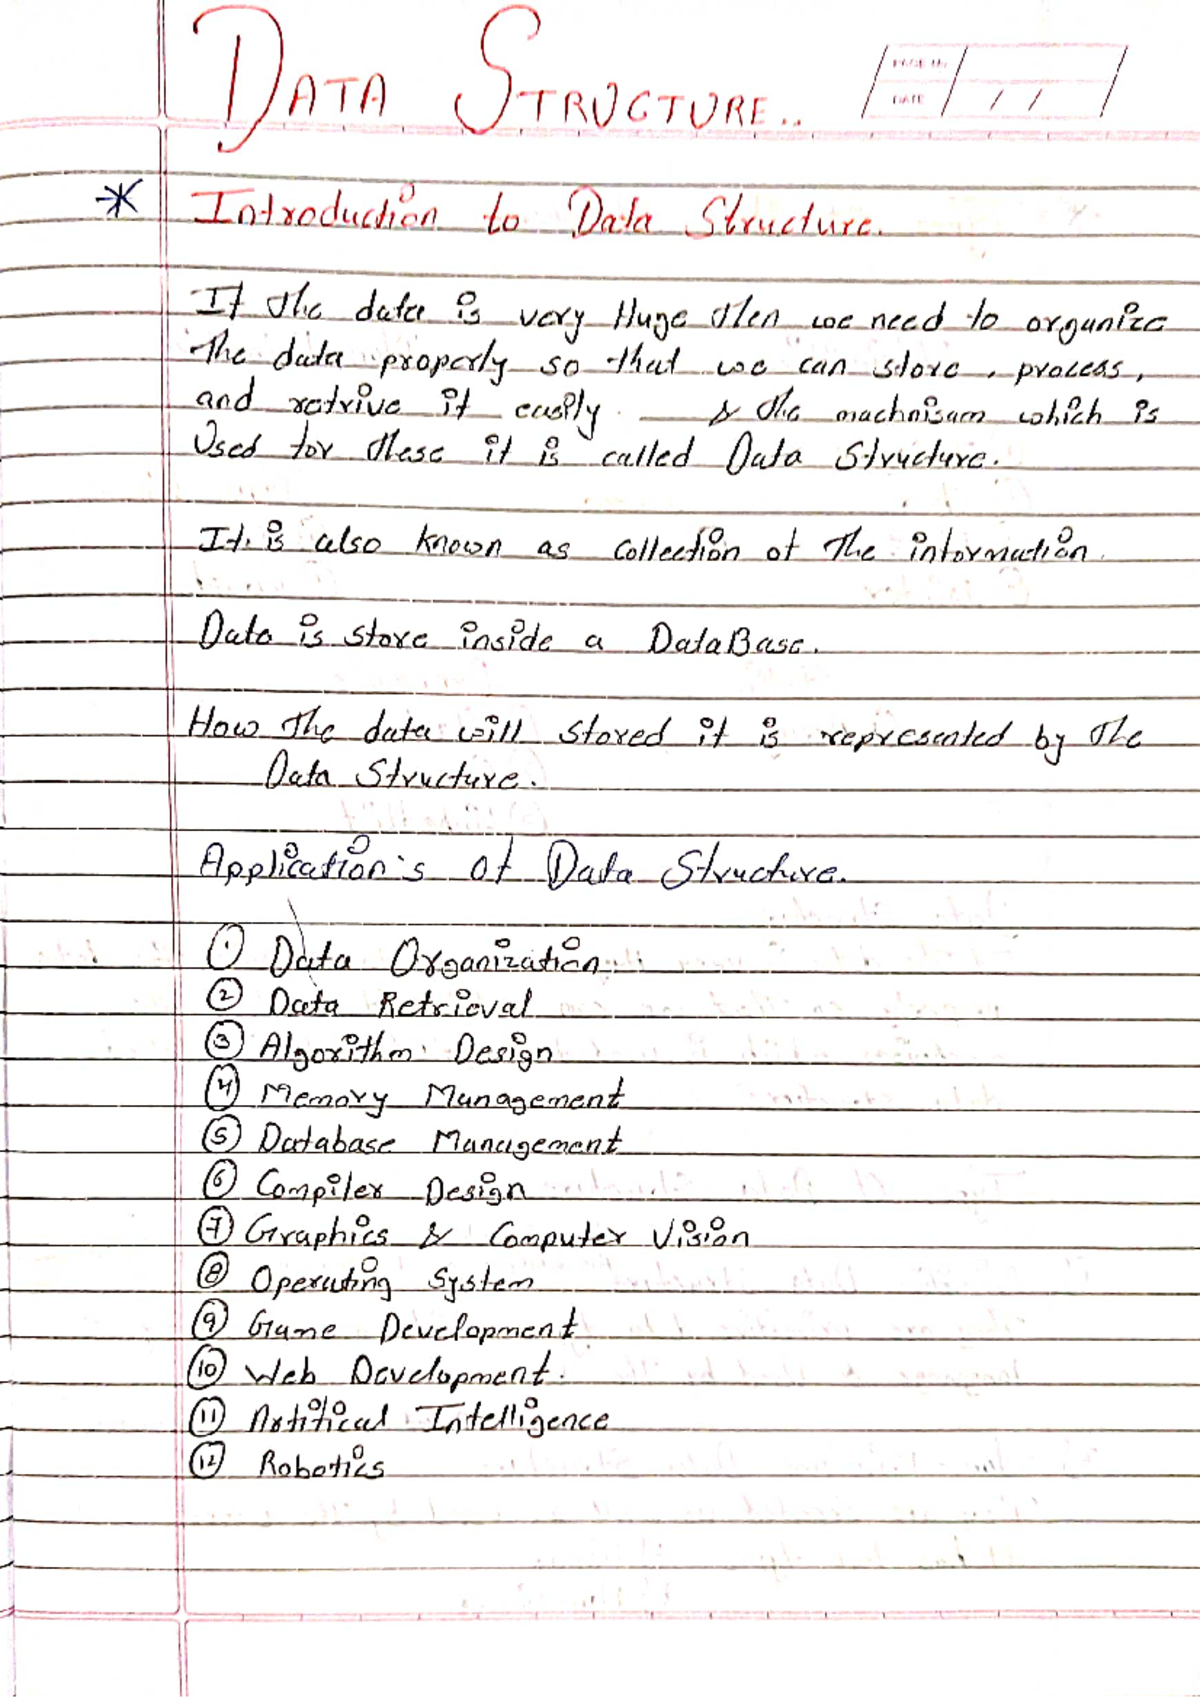 DATA STRUCTURE..
PAGE No.
DATE / /
* Introduction to Data Structure.
If the data is very Huge then we need to organize
the data properly so that we can store, process,
and retrive it easily. & the machnisam which is
Used for these it is called Data Structure.
It is also known as collection of the information.
Data is store inside a DataBase.
How the data will stored it is represented by the
Data Structure.
Application's of Data Structure.
① Data Organization.
② Data Retrieval
③ Algorithm Design
④ Memory Management
⑤ Database Management
⑥ Compiler Design
⑦ Graphics & Computer Vision
⑧ Operating System
⑨ Game Development
⑩ Web Development.
⑪ Artifical Intelligence
⑫ Robotics